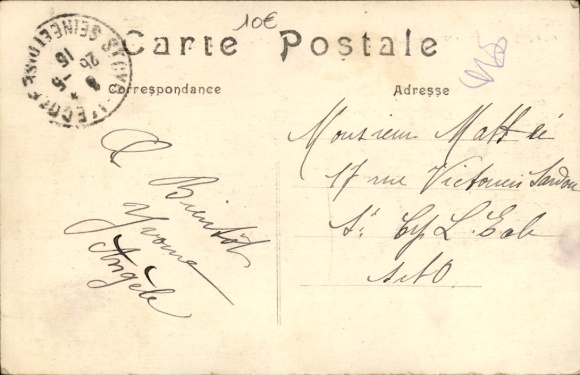 10€
Carte Postale
Correspondance
Adresse
A Bientôt
Yvonne
Angèle
Monsieur Matthé
17 rue Victorien Sardou
St Cyr L'Ecole
S et O
SEINE ET OISE